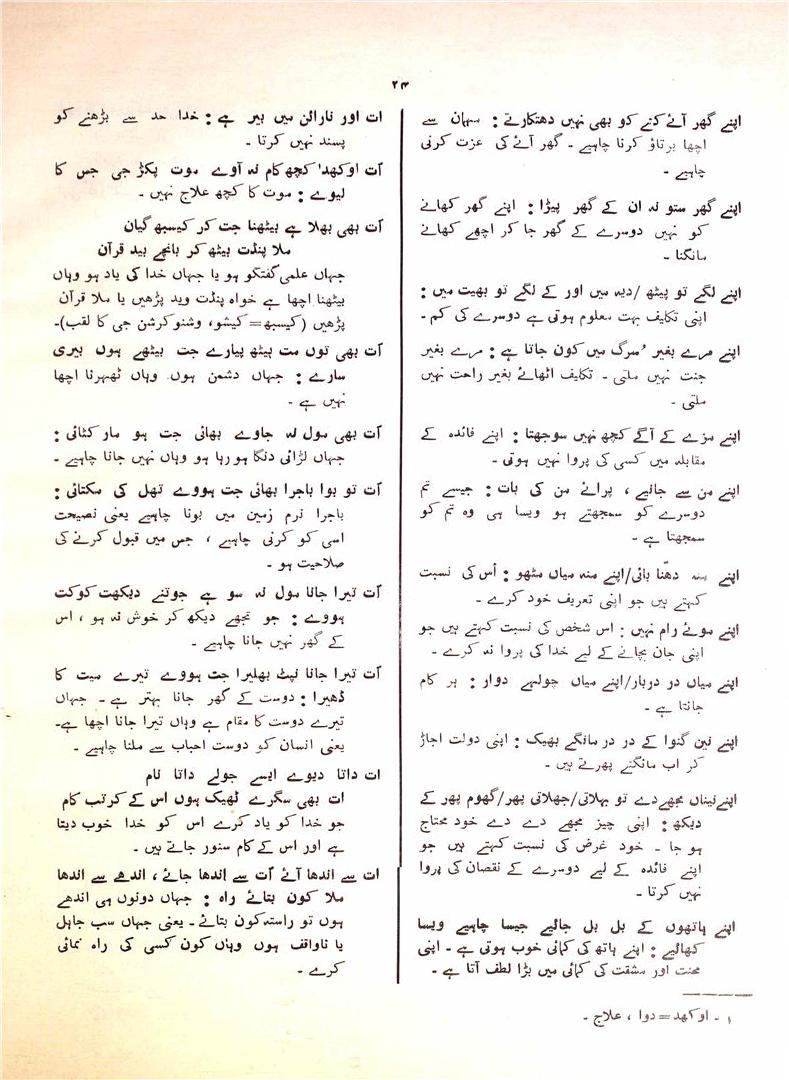 ۲۴
اپنے گھر آئے کتے کو بھی نہیں دھتکارتے : مہمان سے
اچھا برتاؤ کرنا چاہیے ۔ گھر آئے کی عزت کرنی
چاہیے ۔
اپنے گھر ستو نہ ان کے گھر پیڑا : اپنے گھر کھانے
کو نہیں دوسرے کے گھر جا کر اچھے کھانے
مانگنا ۔
اپنے لگے تو پیٹھ /دیہ میں اور کے لگے تو بھیت میں :
اپنی تکلیف بہت معلوم ہوتی ہے دوسرے کی کم ۔
اپنے مرے بغیر سُرگ میں کون جاتا ہے : مرے بغیر
جنت نہیں ملتی ۔ تکلیف اٹھائے بغیر راحت نہیں
ملتی ۔
اپنے مزے کے آگے کچھ نہیں سوجھتا : اپنے فائدہ کے
مقابلہ میں کسی کی پروا نہیں ہوتی ۔
اپنے من سے جانیے ، پرائے من کی بات : جیسے تم
دوسرے کو سمجھتے ہو ویسا ہی وہ تم کو
سمجھتا ہے ۔
اپنے منہ دھنّا بائی/اپنے منہ میاں مٹھو : اُس کی نسبت
کہتے ہیں جو اپنی تعریف خود کرے ۔
اپنے موئے رام نہیں : اس شخص کی نسبت کہتے ہیں جو
اپنی جان بچانے کے لیے خدا کی پروا نہ کرے ۔
اپنے میاں در دربار/اپنے میاں چولہے دوار : ہر کام
جانتا ہے ۔
اپنے نین گنوا کے در در مانگے بھیک : اپنی دولت اجاڑ
کر اب مانگتے پھرتے ہیں ۔
اپنے نیناں مجھے دے تو بہلاتی/جھلاتی پھر/گھوم پھر کے
دیکھ : اپنی چیز مجھے دے دے خود محتاج
ہو جا ۔ خود غرض کی نسبت کہتے ہیں جو
اپنے فائدہ کے لیے دوسرے کے نقصان کی پروا
نہیں کرتا ۔
اپنے ہاتھوں کے بل بل جائیے جیسا چاہیے ویسا
کھائیے : اپنے ہاتھ کی کمائی خوب ہوتی ہے ۔ اپنی
محنت اور مشقت کی کمائی میں بڑا لطف آتا ہے ۔
ات اور نارائن میں بیر ہے : خدا حد سے بڑھنے کو
پسند نہیں کرتا ۔
اَت اوکھد۱ کچھ کام نہ آوے موت پکڑ جی جس کا
لیوے : موت کا کچھ علاج نہیں ۔
اُت بھی بھلا ہے بیٹھنا جت کر کیسبھ گیان
ملا پنڈت بیٹھ کر بانچے بید قرآن
جہاں علمی گفتگو ہو یا جہاں خدا کی یاد ہو وہاں
بیٹھنا اچھا ہے خواہ پنڈت وید پڑھیں یا ملا قرآن
پڑھیں (کیسبھ = کیشو، وشنو کرشن جی کا لقب)۔
اُت بھی توں مت بیٹھ پیارے جت بیٹھے ہوں بیری
سارے : جہاں دشمن ہوں وہاں ٹھہرنا اچھا
نہیں ہے ۔
اُت بھی مول نہ جاوے بھائی جت ہو مار کٹائی :
جہاں لڑائی دنگا ہو رہا ہو وہاں نہیں جانا چاہیے ۔
اُت تو بوا باجرا بھائی جت ہووے تھل کی مکتائی :
باجرا نرم زمین میں بونا چاہیے یعنی نصیحت
اسی کو کرنی چاہیے ، جس میں قبول کرنے کی
صلاحیت ہو ۔
اُت تیرا جانا مول نہ سو ہے جوتنے دیکھت کوکت
ہووے : جو تجھے دیکھ کر خوش نہ ہو ، اس
کے گھر نہیں جانا چاہیے ۔
اُت تیرا جانا نپٹ بھلیرا جت ہووے تیرے میت کا
ڈھیرا : دوست کے گھر جانا بہتر ہے ۔ جہاں
تیرے دوست کا مقام ہے وہاں تیرا جانا اچھا ہے۔
یعنی انسان کو دوست احباب سے ملنا چاہیے ۔
ات داتا دیوے ایسے جولے داتا نام
ات بھی سگرے ٹھیک ہوں اس کے کرتب کام
جو خدا کو یاد کرے اس کو خدا خوب دیتا
ہے اور اس کے کام سنور جاتے ہیں ۔
ات سے اندھا آئے اُت سے اندھا جائے ، اندھے سے اندھا
ملا کون بتائے راہ : جہاں دونوں ہی اندھے
ہوں تو راستہ کون بتائے ۔ یعنی جہاں سب جاہل
یا ناواقف ہوں وہاں کون کسی کی راہ نمائی
کرے ۔
۱ ۔ اوکھد = دوا ، علاج ۔